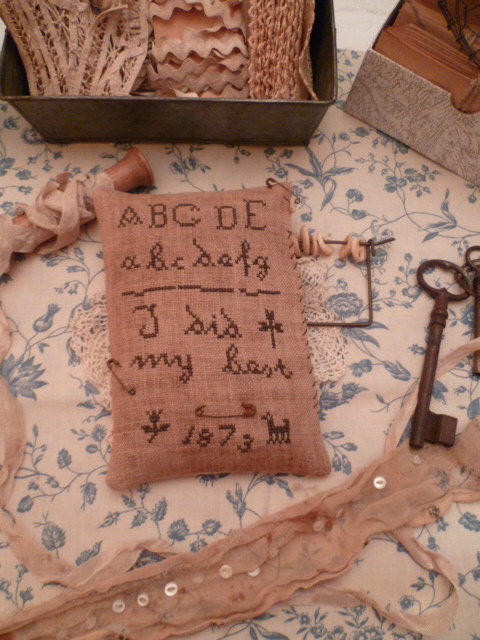 ABC DE
abcdefg
I did
my best
1873